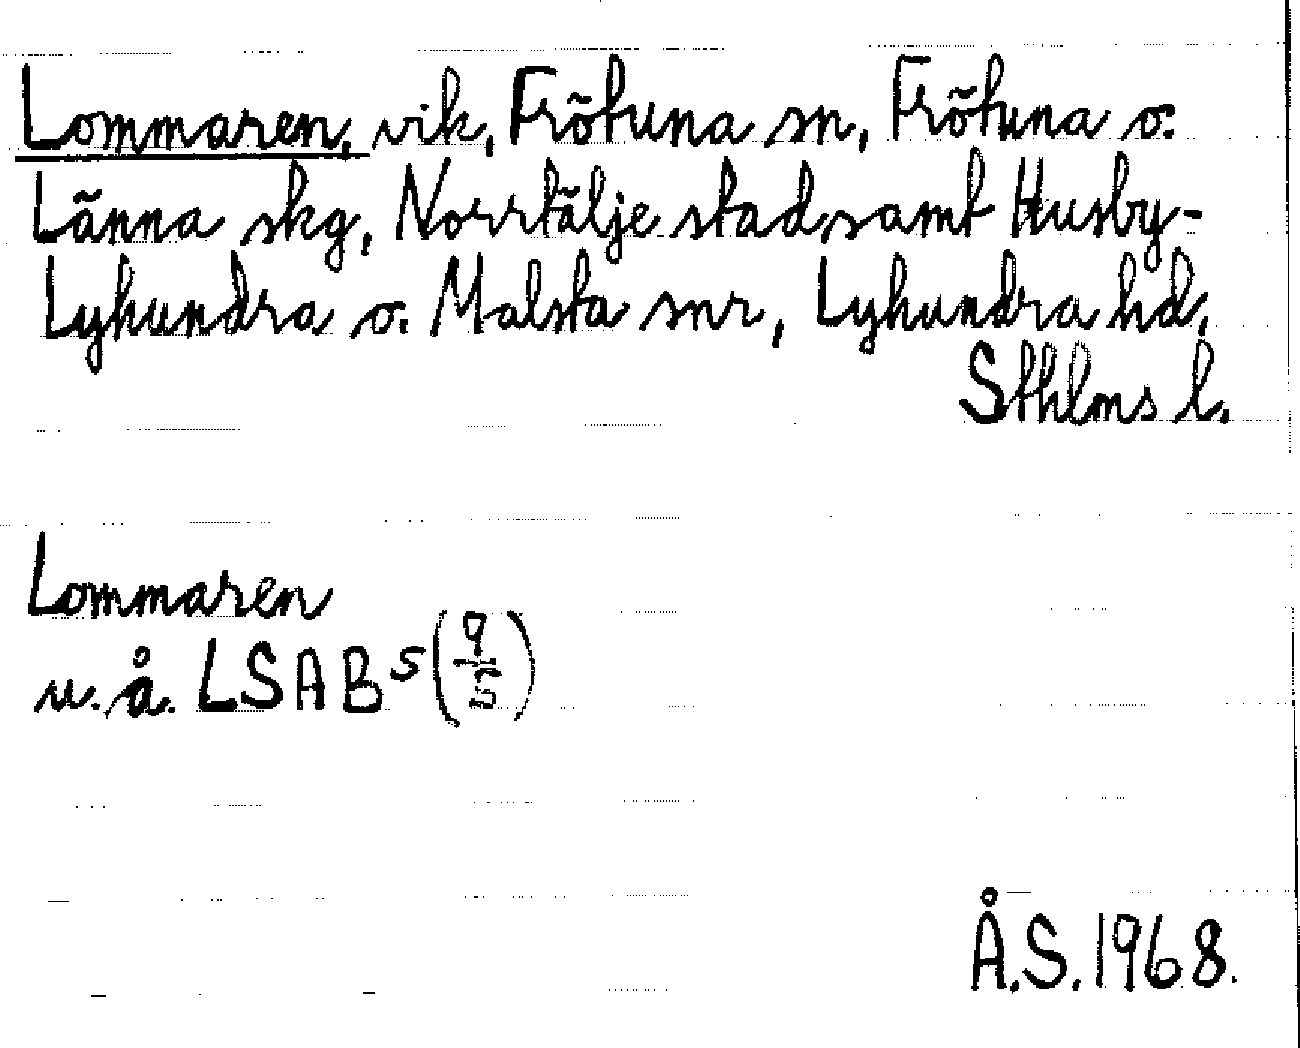 Lommaren, vik, Frötuna sn, Frötuna o.
Länna skg, Norrtälje stad samt Husby-
Lyhundra o. Malsta snr, Lyhundra hd,
Sthlms l.
Lommaren
u.å. LSA B 5 (9/5)
Å.S. 1968.